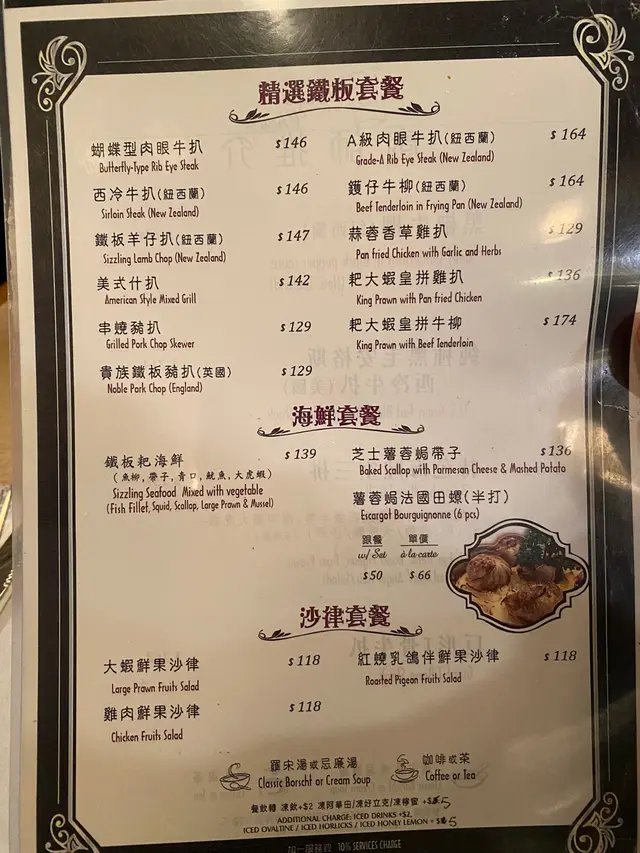 精選鐵板套餐
蝴蝶型肉眼牛扒 $146
Butterfly-Type Rib Eye Steak
A級肉眼牛扒(紐西蘭) $164
Grade-A Rib Eye Steak (New Zealand)
西冷牛扒(紐西蘭) $146
Sirloin Steak (New Zealand)
鑊仔牛柳(紐西蘭) $164
Beef Tenderloin in Frying Pan (New Zealand)
鐵板羊仔扒(紐西蘭) $147
Sizzling Lamb Chop (New Zealand)
蒜蓉香草雞扒 $129
Pan fried Chicken with Garlic and Herbs
美式什扒 $142
American Style Mixed Grill
耙大蝦皇拼雞扒 $136
King Prawn with Pan fried Chicken
串燒豬扒 $129
Grilled Pork Chop Skewer
耙大蝦皇拼牛柳 $174
King Prawn with Beef Tenderloin
貴族鐵板豬扒(英國) $129
Noble Pork Chop (England)
海鮮套餐
鐵板耙海鮮 $139
(魚柳,帶子,青口,魷魚,大虎蝦)
Sizzling Seafood Mixed with vegetable
(Fish Fillet, Squid, Scallop, Large Prawn & Mussel)
芝士薯蓉焗帶子 $136
Baked Scallop with Parmesan Cheese & Mashed Potato
薯蓉焗法國田螺(半打)
Escargot Bourguignonne (6 pcs)
跟餐 單價
w/ Set à la carte
$50 $66
沙律套餐
大蝦鮮果沙律 $118
Large Prawn Fruits Salad
紅燒乳鴿伴鮮果沙律 $118
Roasted Pigeon Fruits Salad
雞肉鮮果沙律 $118
Chicken Fruits Salad
羅宋湯或忌廉湯
Classic Borscht or Cream Soup
咖啡或茶
Coffee or Tea
餐飲轉 凍飲+$2 凍阿華田/凍好立克/凍檸蜜 +$5
ADDITIONAL CHARGE: ICED DRINKS +$2,
ICED OVALTINE / ICED HORLICKS / ICED HONEY LEMON + $5
加一服務費 10% SERVICES CHARGE